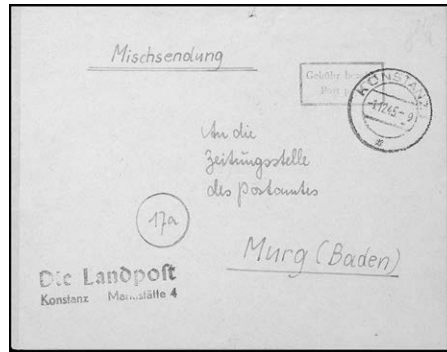 Mischsendung
Gebühr
Post
KONSTANZ
-1.12.45-9
An die
Zeitungsstelle
des Postamtes
17a
Murg (Baden)
Die Landpost
Konstanz Marktstätte 4